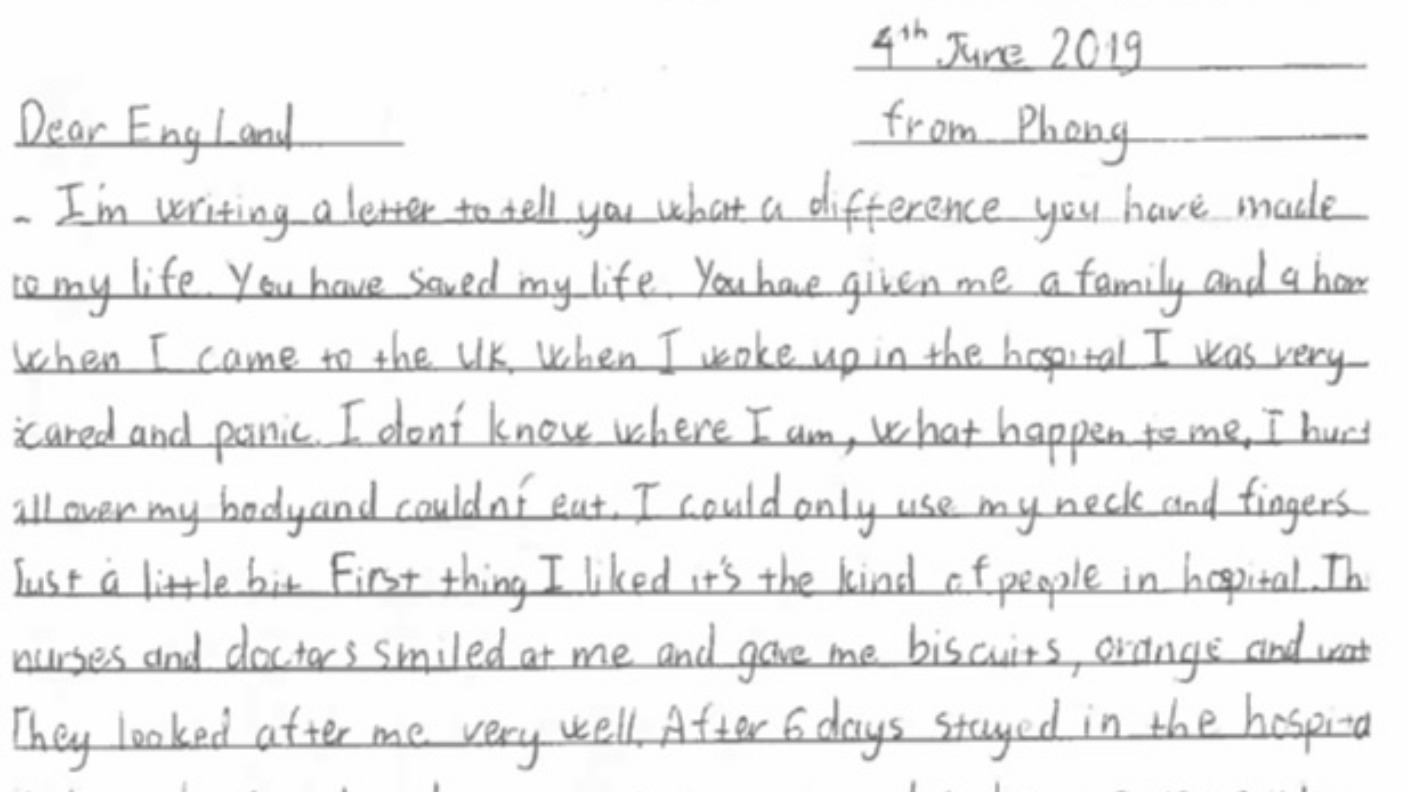 4th June 2019
Dear England
from Phong
- I'm writing a letter to tell you what a difference you have made
to my life. You have saved my life. You have given me a family and a hom
when I came to the UK. When I woke up in the hospital I was very
scared and panic. I don't know where I am, what happen to me, I hurt
all over my body and couldn't eat. I could only use my neck and fingers
Just a little bit First thing I liked it's the kind of people in hospital. Th
nurses and doctors smiled at me and gave me biscuits, orange and wat
They looked after me very well. After 6 days stayed in the hospita